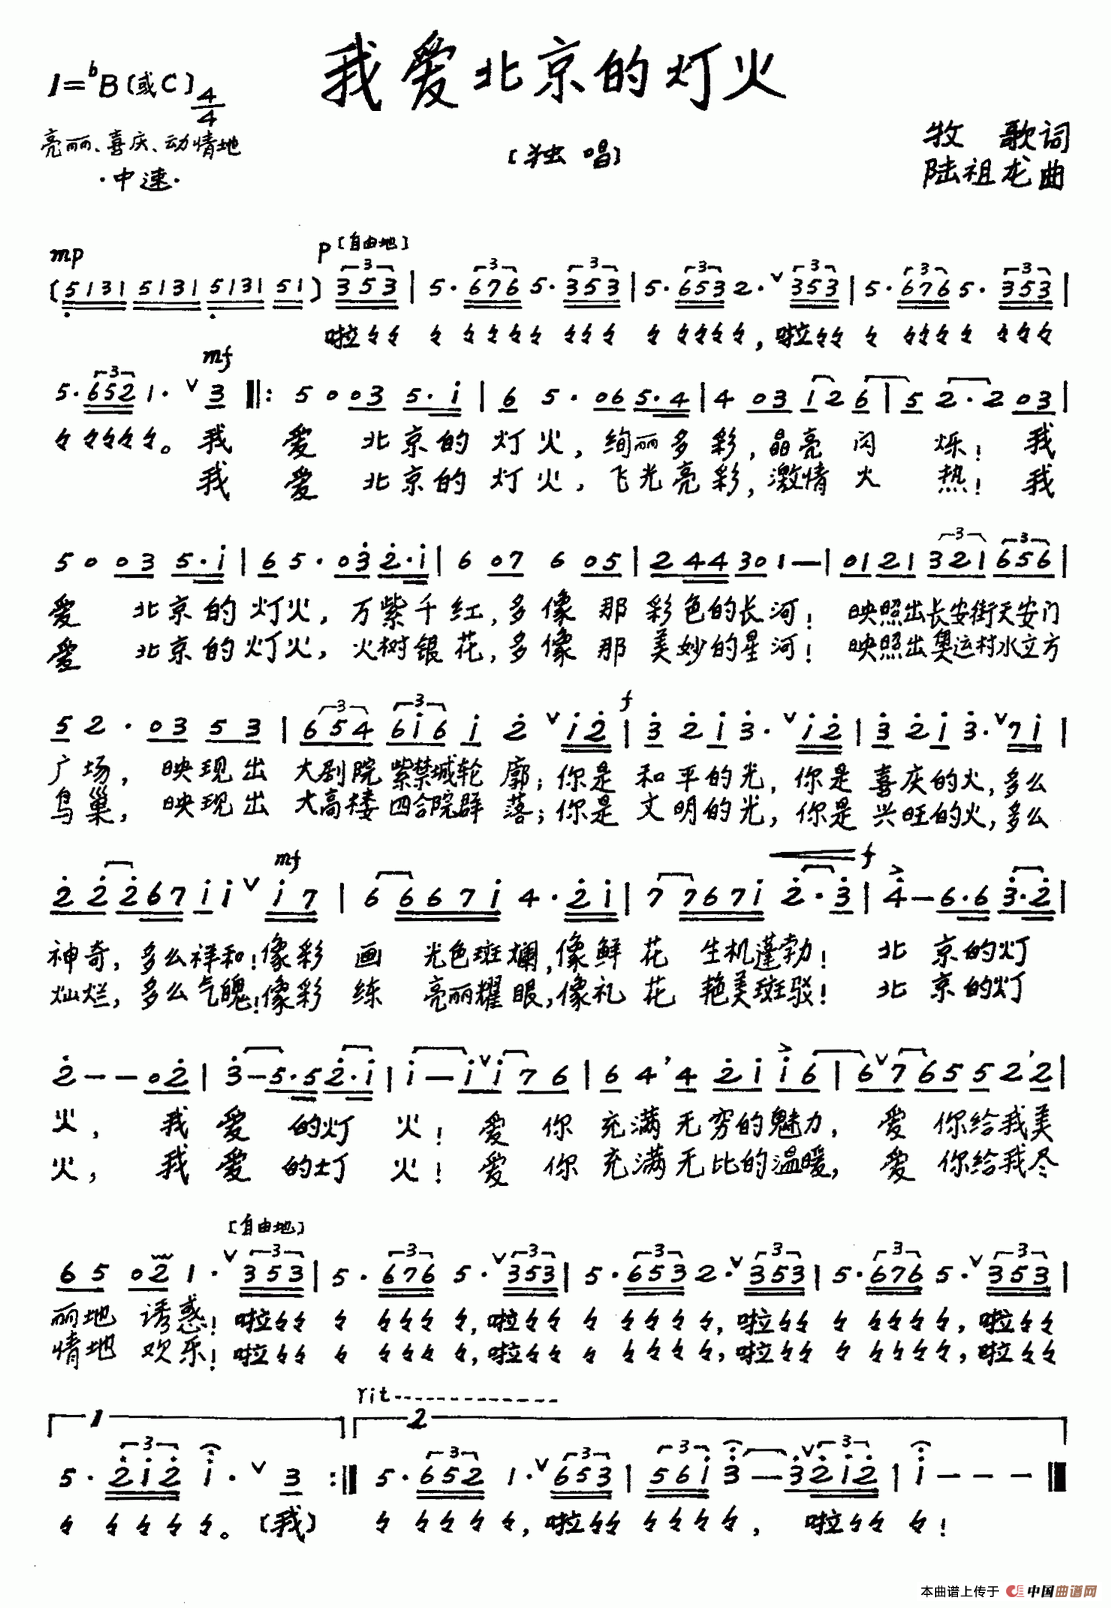 我爱北京的灯火
1=♭B(或C) 4/4
亮丽、喜庆、动情地
·中速·
[独唱]
牧 歌词
陆祖龙曲
mp p [自由地]
(5131 5131 5131 51) 353 | 5·676 5·353 | 5·653 2· ∨ 353 | 5·676 5· 353 |
啦々々 々 々々々々 々々々 々 々々々々，啦々々 々 々々々々 々々々
mf
5·652 1· ∨ 3 ‖: 5 0 03 5·i | 6 5· 06 5·4 | 4 03 i26 | 5 2·2 03 |
々々々々々。我 爱 北京的灯火，绚丽多彩，晶亮闪烁！我
我 爱 北京的灯火，飞光亮彩，激情火热！我
5 0 03 5·i | 6 5· 03 2·i | 6 07 6 05 | 244 301— | 0121 321 656 |
爱 北京的灯火，万紫千红，多像那彩色的长河！映照出长安街天安门
爱 北京的灯火，火树银花，多像那美妙的星河！映照出奥运村水立方
f
5 2· 03 53 | 654 6i6 i 2 ∨ i2 | 3 2i 3· ∨ i2 | 3 2i 3· ∨ 7i |
广场，映现出大剧院紫禁城轮廓；你是和平的光，你是喜庆的火，多么
鸟巢，映现出大高楼四合院群落；你是文明的光，你是兴旺的火，多么
mf f
2 2267 i i ∨ i7 | 6 667i 4·2i | 7 767i 2·3 | 4—6·6 3·2 |
神奇，多么祥和！像彩画光色斑斓，像鲜花生机蓬勃！北京的灯
灿烂，多么气魄！像彩练亮丽耀眼，像礼花艳美斑驳！北京的灯
2——02 | 3—5·5 2·i | i—i ∨ i76 | 6 4' 4 2i i6 | 6 ∨ 765 5 2' 2 |
火，我爱的灯火！爱你充满无穷的魅力，爱你给我美
火，我爱的灯火！爱你充满无比的温暖，爱你给我尽
[自由地]
65 02 1· ∨ 353 | 5·676 5· ∨ 353 | 5·653 2· ∨ 353 | 5·676 5· ∨ 353 |
丽地诱惑！啦々々 々 々々々 々，啦々々 々 々々々々，啦々々 々 々々々々，啦々々
情地欢乐！啦々々 々 々々々 々，啦々々 々 々々々々，啦々々 々 々々々々，啦々々
rit
1 2
5· 2i2 i· ∨ 3 :‖ 5·652 1· ∨ 653 | 56i 3—32i2 | i——— ‖
々 々々々 々。(我) 々 々々々 々，啦々々 々々々 々，啦々々々 々！
本曲谱上传于 中国曲谱网